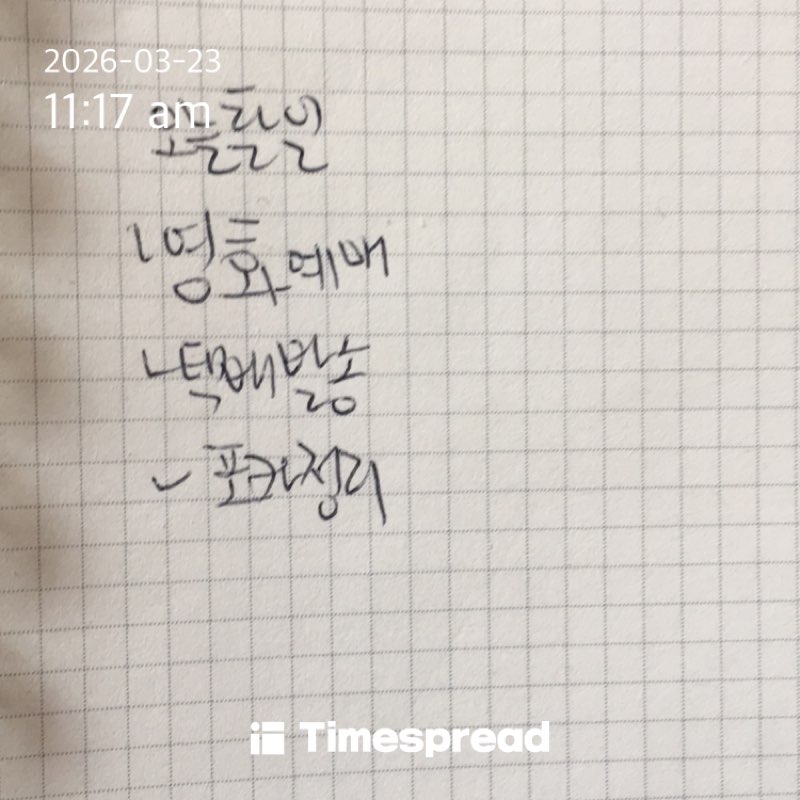 2026-03-23
11:17 am
오늘할일
✓ 영화예매
✓ 택배발송
✓ 포카정리
Timespread